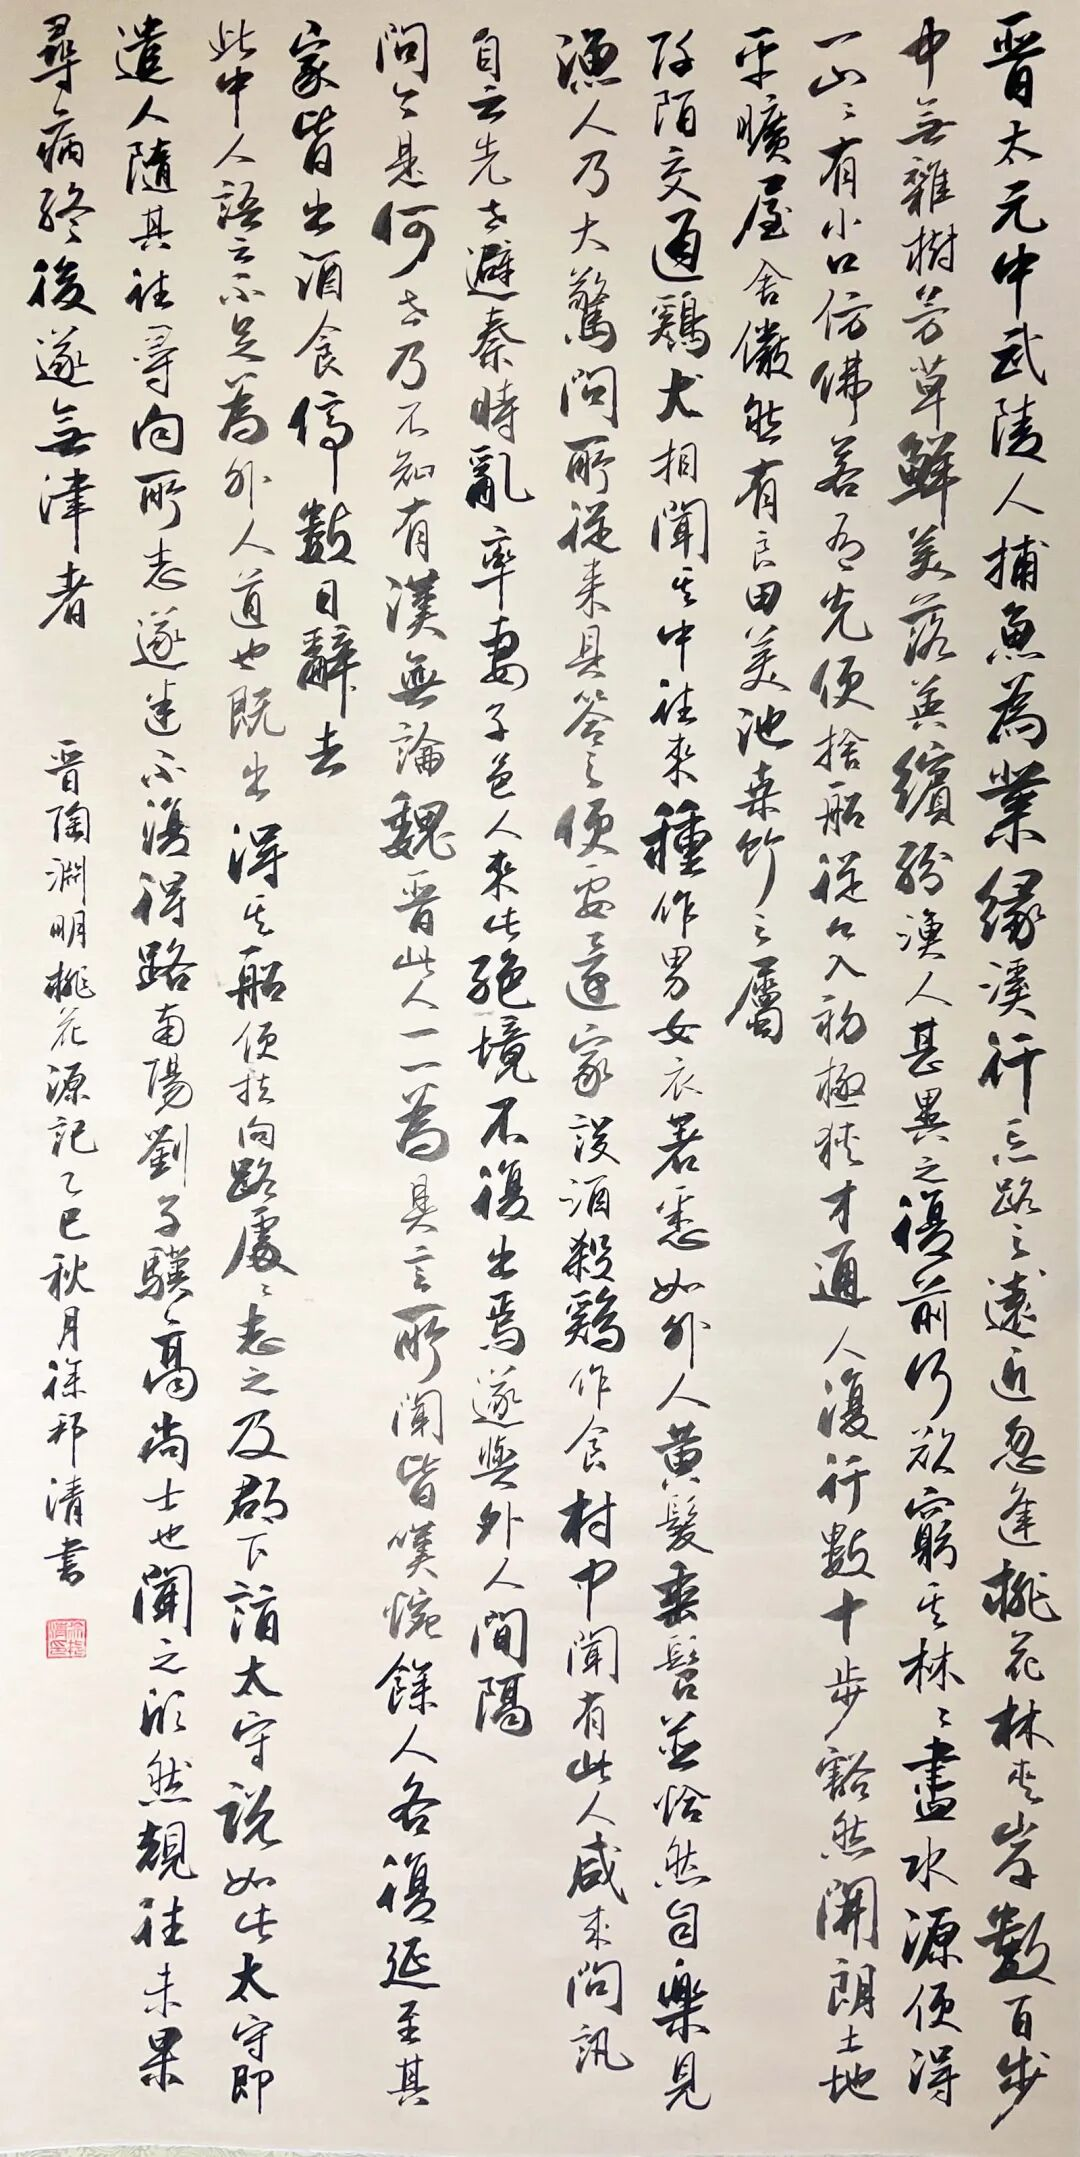 晋太元中武陵人捕魚為業緣溪行忘路之遠近忽逢桃花林夹岸數百步
中無雜樹芳草鮮美落英繽紛漁人甚異之復前行欲窮其林〻盡水源便得
一山〻有小口仿佛若有光便捨船從口入初極狹才通人復行數十步豁然開朗土地
平曠屋舍儼然有良田美池桑竹之屬
阡陌交通鷄犬相聞其中往來種作男女衣著悉如外人黄髮垂髫並怡然自樂見
漁人乃大驚問所從来具答之便要還家設酒殺鷄作食村中聞有此人咸来問訊
自云先世避秦時亂率妻子邑人來此絶境不復出焉遂與外人間隔
問今是何世乃不知有漢無論魏晋此人一一為具言所聞皆嘆惋餘人各復延至其
家皆出酒食停數日辭去
此中人語云不足為外人道也既出得其船便扶向路處〻志之及郡下詣太守説如此太守即
遣人隨其往尋向所志遂迷不復得路南陽劉子驥高尚士也聞之欣然規往未果
尋病終後遂無津者
晋陶淵明桃花源記乙巳秋月徐邦清書